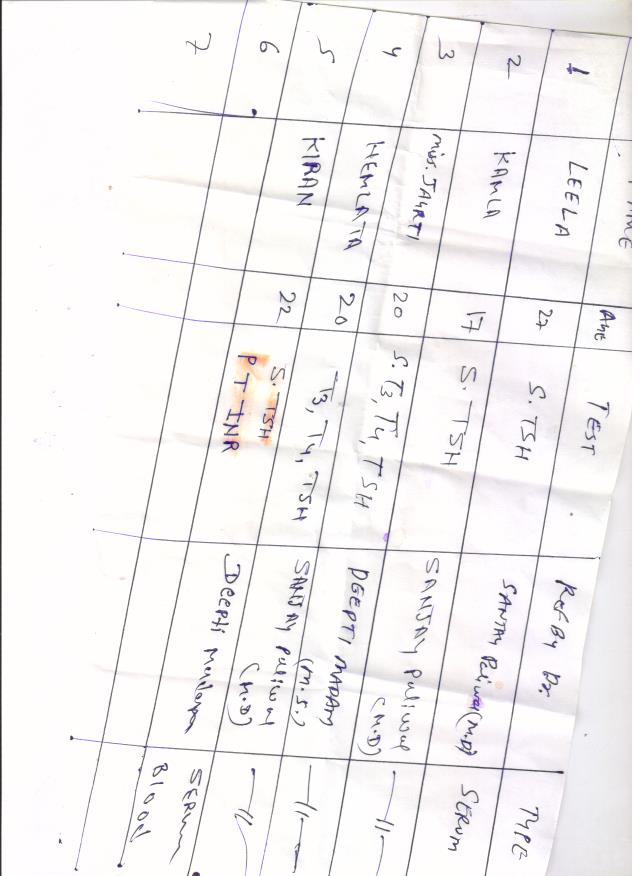 AME Age TEST Ref By Dr. TYPE
1 LEELA 27 S. TSH SANJAY Paliwal (M.D) SERUM
2 KAMLA 17 S. TSH SANJAY Paliwal (M.D) —11—
3 Miss. 20 S. T3, T4, TSH DEEPTI MADAM (M.S.) —11—
4 HEMLATA 20 T3, T4, TSH SANJAY Paliwal (M.D) —11—
5 KIRAN 22 S. TSH Deepti SERUM
PT INR Blood
6
7